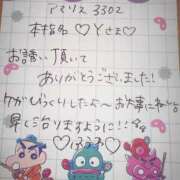 アマリス 3302
本指名♡Yさま♡
お誘い頂いて
ありがとうございました!
ケガびっくりしたよ〜お大事にねっ
早く治りますように!!